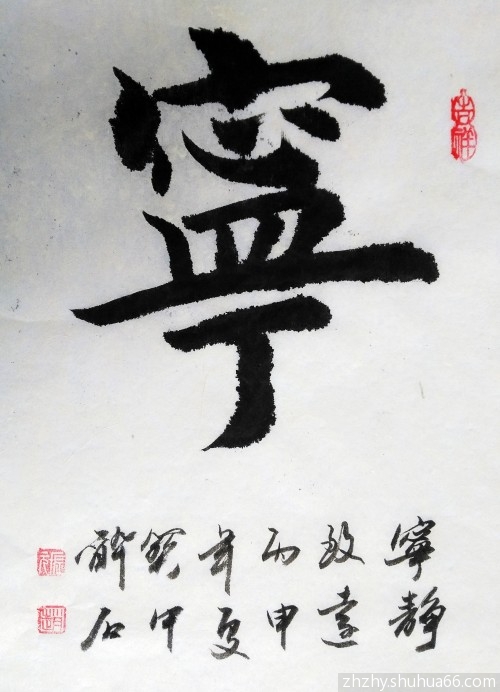 寧
吉祥
寧靜
致遠
丙申
年夏
石
zhzhy.shuhua66.com